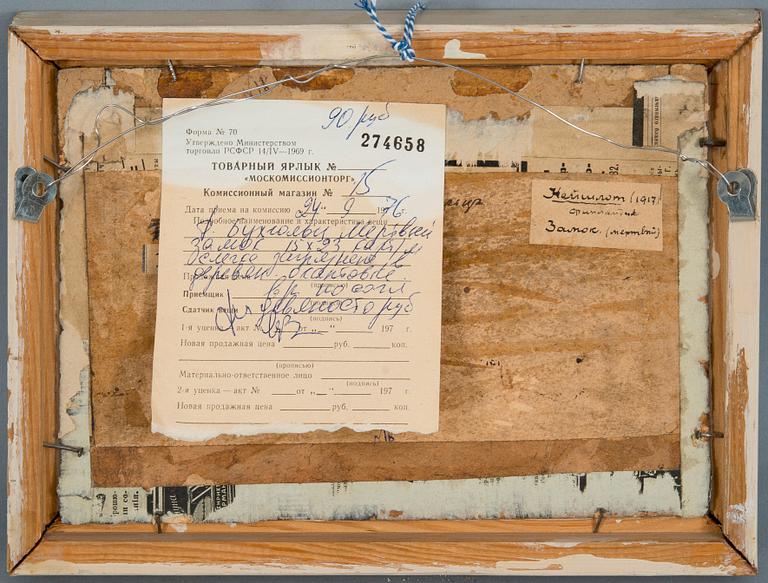 90 руб
Форма № 70
Утверждено Министерством
торговло РСФСР 14/IV—1969 г.
274658
ТОВАРНЫЙ ЯРЛЫК №
«МОСКОМИССИОНТОРГ»
Комиссионный магазин № 15
Дата приема на комиссию 24 " 9 1976 г.
Подробное наименование и характеристика вещи
Бухгольц Мертвый
замок 15х23
слегка загрязнена в
деревян окантовке
Приемщик
(прописью)
по согл
Сдатчик вещи
девяносто руб
(подпись)
1-я уценка — акт № от „ “ 197 г.
Новая продажная цена руб. коп.
(прописью)
Материально-ответственное лицо
(подпись)
2-я уценка — акт № от „ “ 197 г.
Новая продажная цена руб. коп.
Нейшлот (1917)
Финляндия
Замок. (мертвый)